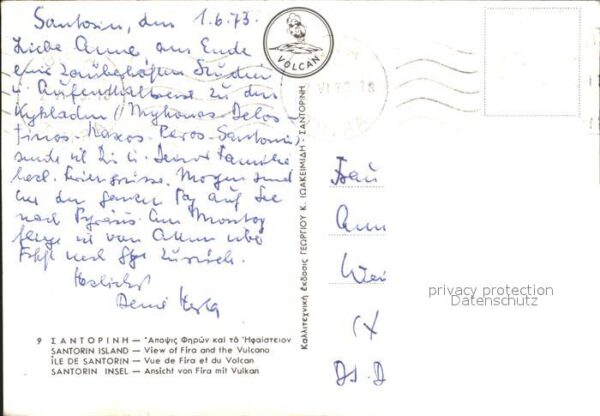 Santorin, den 1.6.73.
Liebe Anne am Ende
einer zauberhaften Studien
u. Aufenthaltsreise zu den
Kykladen (Mykonos-Delos-
Tinos-Naxos-Paros-Santorin)
sende ich Dir u. Deiner Familie
herzl. Feriengrüsse. Morgen sind
wir den ganzen Tag auf See
nach Pyräus. Am Montag
fliege ich von Athen über
nach zurück.
Herzlichst
Deine
VOLCAN
Καλλιτεχνική έκδοσις ΓΕΩΡΓΙΟΥ Κ. ΙΩΑΚΕΙΜΙΔΗ - ΣΑΝΤΟΡΙΝΗ
Frau
Ann
privacy protection
Datenschutz
9 ΣΑΝΤΟΡΙΝΗ — Ἄποψις Φηρῶν καὶ τὸ Ἡφαίστειον
SANTORIN ISLAND — View of Fira and the Vulcano
ÎLE DE SANTORIN — Vue de Fira et du Volcan
SANTORIN INSEL — Ansicht von Fira mit Vulkan